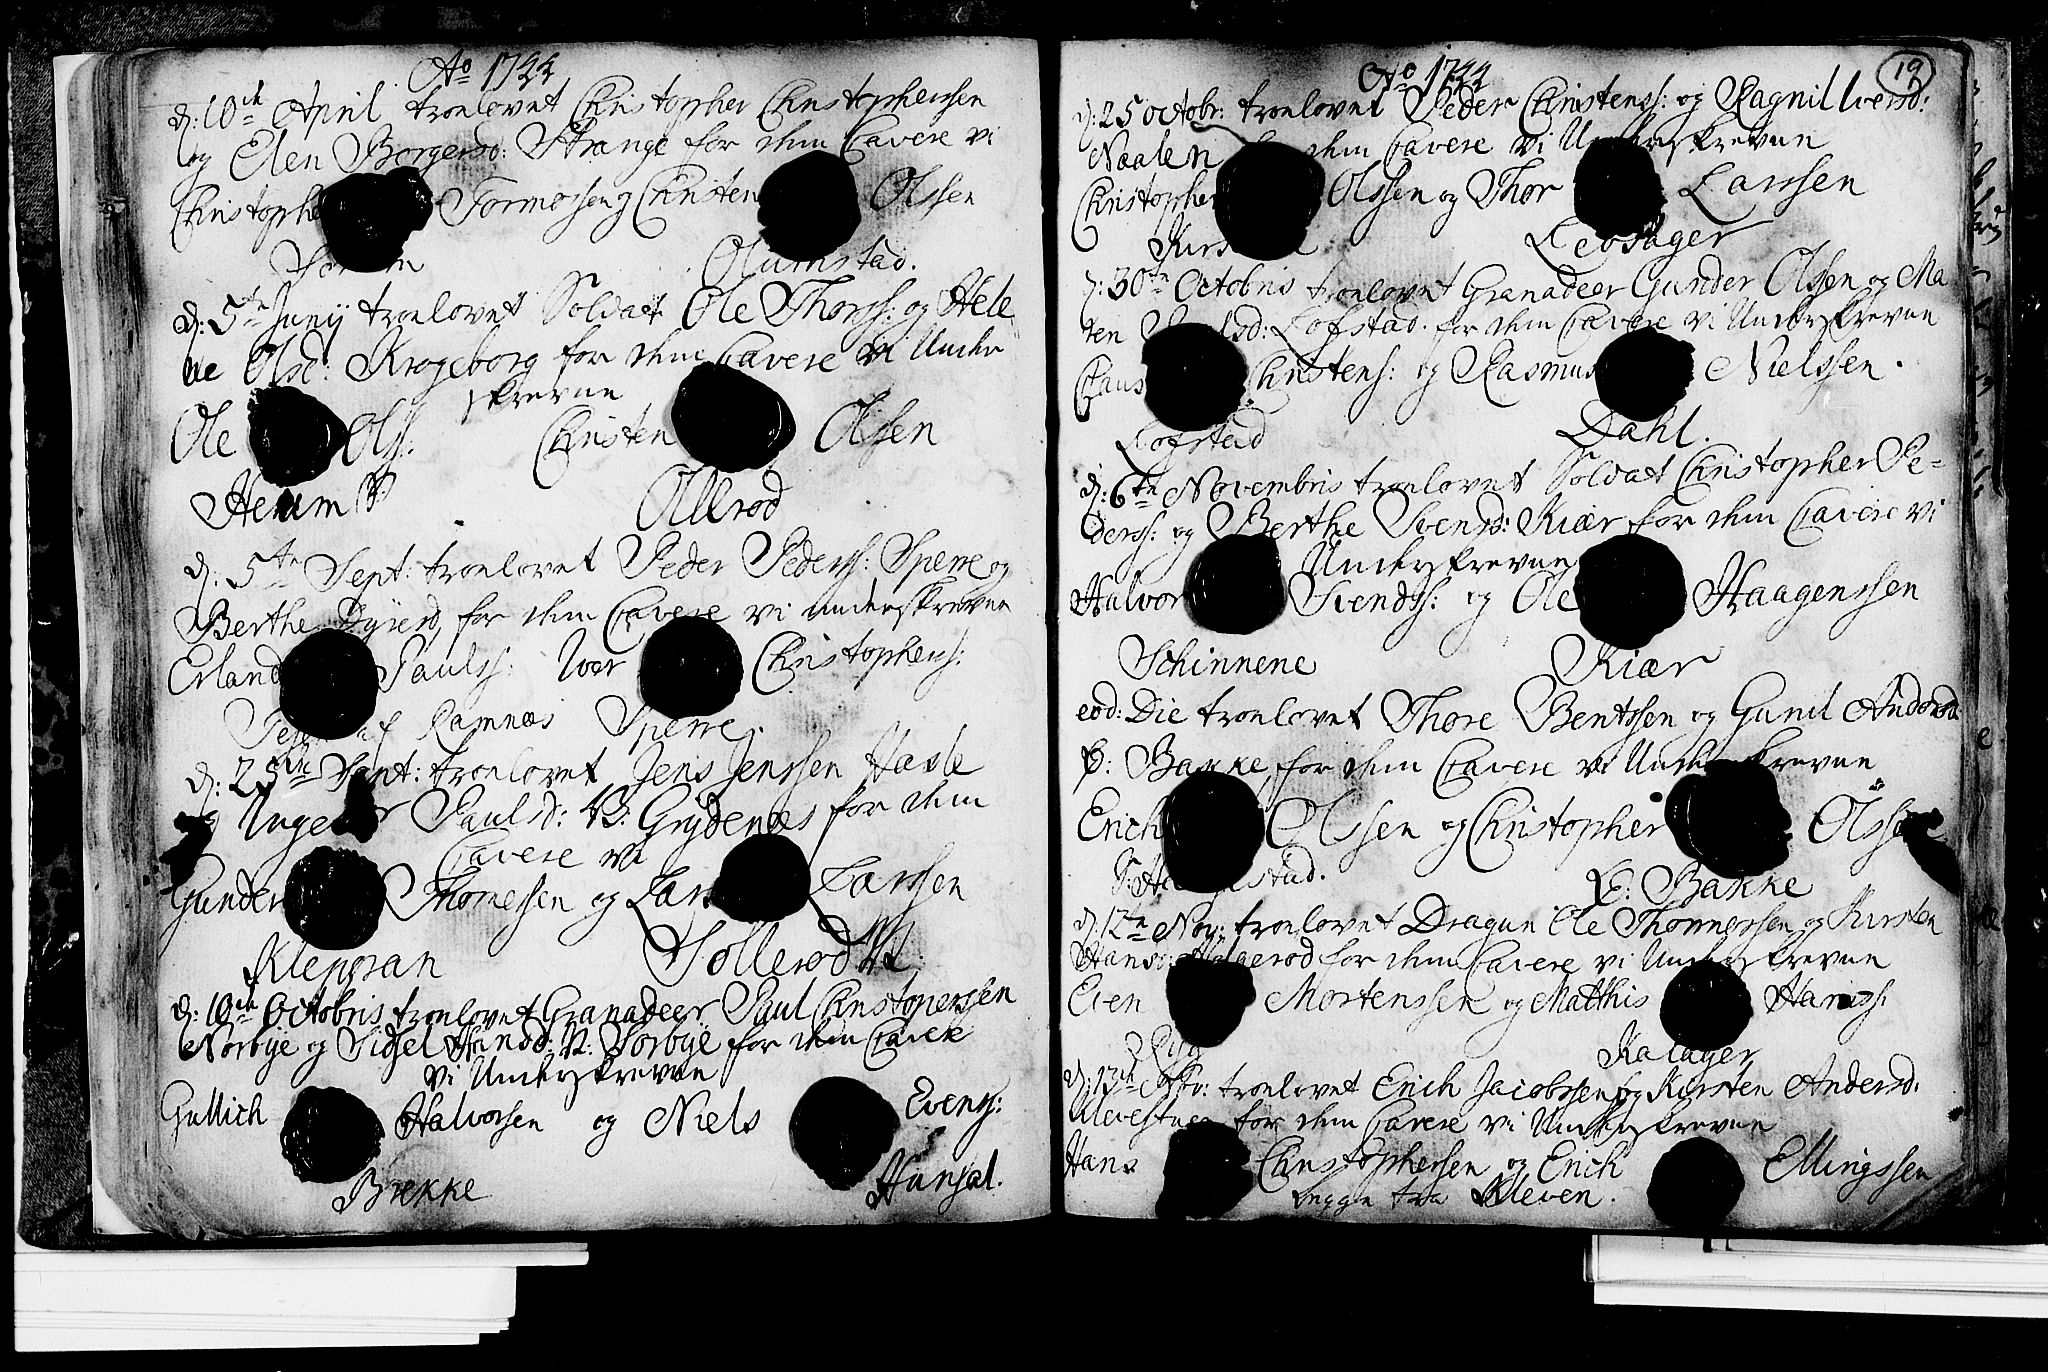 Ao 1744
d: 10de April troelovet Christopher Christophersen
og Elen Borgersd: Strange for dem Cavere vi
Christopher Tormosen og Christen Olssen
Olumstad.
d: 5te Junij troelovet Soldat Ole Thorss: og Hele
ne Olsd: Krogeborg for dem Cavere vi Under
skrevne
Ole Olss: Christen Olssen
Herum Ollerød
d: 5te Sept: troelovet Peder Pederss: Sperre og
Berthe for dem Cavere vi underskrevne
Erland Paulss: Iver Christophers:
Ramnæs Sperre.
d: 25de Sept: troelovet Jens Jenssen Hasle
og Ingebor Paulsd: W: Grydenæs for dem
Cavere vi
Gunder Thomessen og Lars Larssen
Klepgran Sollerød W:
d: 10de Octobris troelovet Granadeer Paul Christopersen
Norbye og Sidsel Hansd: N: Sorbye for dem Cavere
vi Underskrevne
Gullich Halvorsen og Niels Evenss:
Brekke Hansæl.
Ao 1744
19
d: 25 Octobr: troelovet Peder Christenss: og Ragnil Iversd:
Naalen for dem Cavere vi Underskrevne
Christopher Olssen og Thor Larssen
Løvsager
d: 30te Octobris troelovet Granadeer Gunder Olssen og Ma
ren Lofstad. for dem Cavere vi Underskrevne
Claus Christens: og Rasmus Nielssen.
Lofstad Dahl.
d: 6te Novembris troelovet Soldat Christopher Pe=
derss: og Berthe Svensd: Kiær for dem Cavere vi
Underskrevne
Halvor Svendss: og Ole Haagenssen
Schinnene Kiær
eod: Die troelovet Thore Bentssen og Gunil Andersd:
Ø: Bakke for dem Cavere vi Underskrevne
Erich Olssen og Christopher Olssen
Ø: Bakke
d: 12te Nov: troelovet Dragun Ole Thommessen og Kirsten
Hansd: for dem Cavere vi Underskrevne
Even Mortenssen og Matthis Hanss:
Kalager
d: troelovet Erich Jacobssen og Kirsten Andersd:
for dem Cavere vi Underskrevne
Hans Christophersen og Erich Ellingssen
begge fra Kleven.